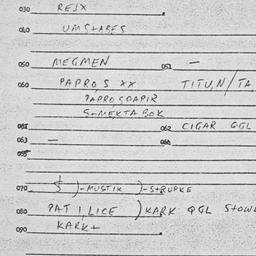 030 REJX
040 UMStARES
050 MEGMEN 051 -
060 PAPROS XX TITU,N/TA
PAPROSPAPIR
S-MEKTA BOK
061 062 CIGAR QGL
063 - 064
065
070 )-MUSTIK )-StRUPKE
080 PAT I, LICE )KARK QGL StOWE
090 KARK+